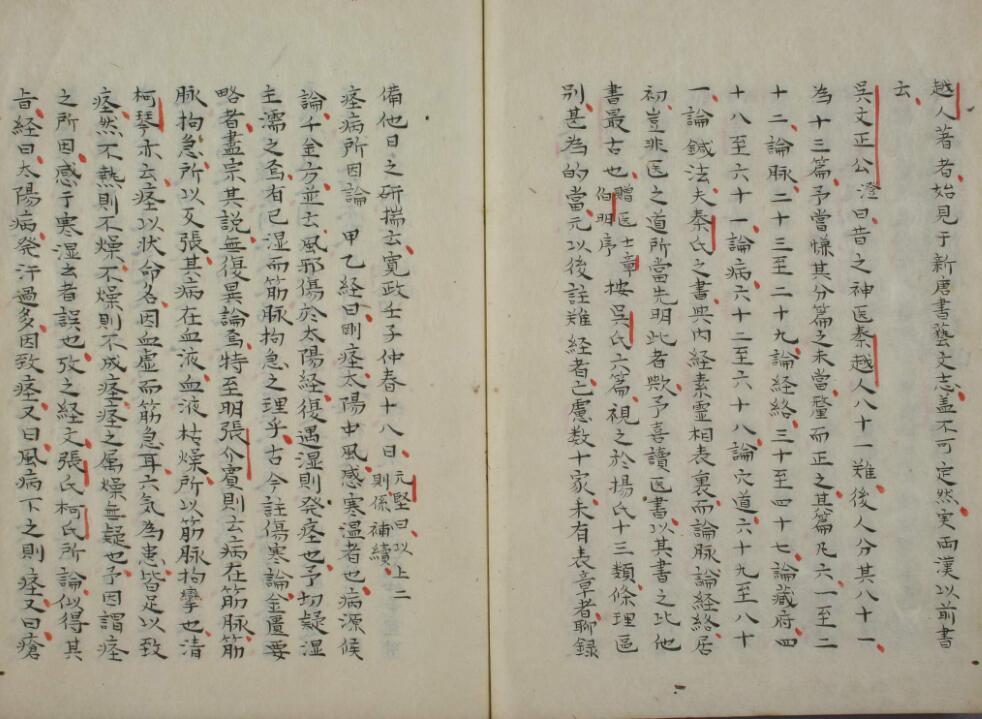 越人著者始見于新唐書藝文志盖不可定然実両漢以前書
云
呉文正公澄曰昔之神医秦越人八十一難後人分其八十一
為十三篇予嘗慊其分篇之未當釐而正之其篇凡六一至二
十二論脉二十三至二十九論経絡三十至四十七論藏府四
十八至六十一論病六十二至六十八論穴道六十九至八十
一論鍼法夫秦氏之書與内経素霊相表裏而論脉論経絡居
初豈非医之道所當先明此者欤予喜讀医書以其書之比他
書最古也贈医士章伯明序按呉氏六篇視之於揚氏十三類條理區
別甚為的當元以後註難経者亡慮数十家未有表章者聊録
備他日之研揣云寛政壬子仲春十八日元堅曰以上二則係補續
痙病所因論 甲乙経曰剛痙太陽中風感寒温者也病源候
論千金方並云風邪傷於太陽経復遇湿則発痙也予切疑湿
主濡之焉有已湿而筋脉拘急之理乎古今註傷寒論金匱要
略者盡宗其説無復異論焉特至明張介賓則云病在筋脉筋
脉拘急所以反張其病在血液血液枯燥所以筋脉拘攣也清
柯琴亦云痙以状命名因血虚而筋急耳六気為患皆足以致
痙然不熱則不燥不燥則不成痙痙之属燥無疑也予因謂痙
之所因感于寒湿云者誤也攷之経文張氏柯氏所論似得其
旨経曰太陽病発汗過多因致痙又曰風病下之則痙又曰瘡